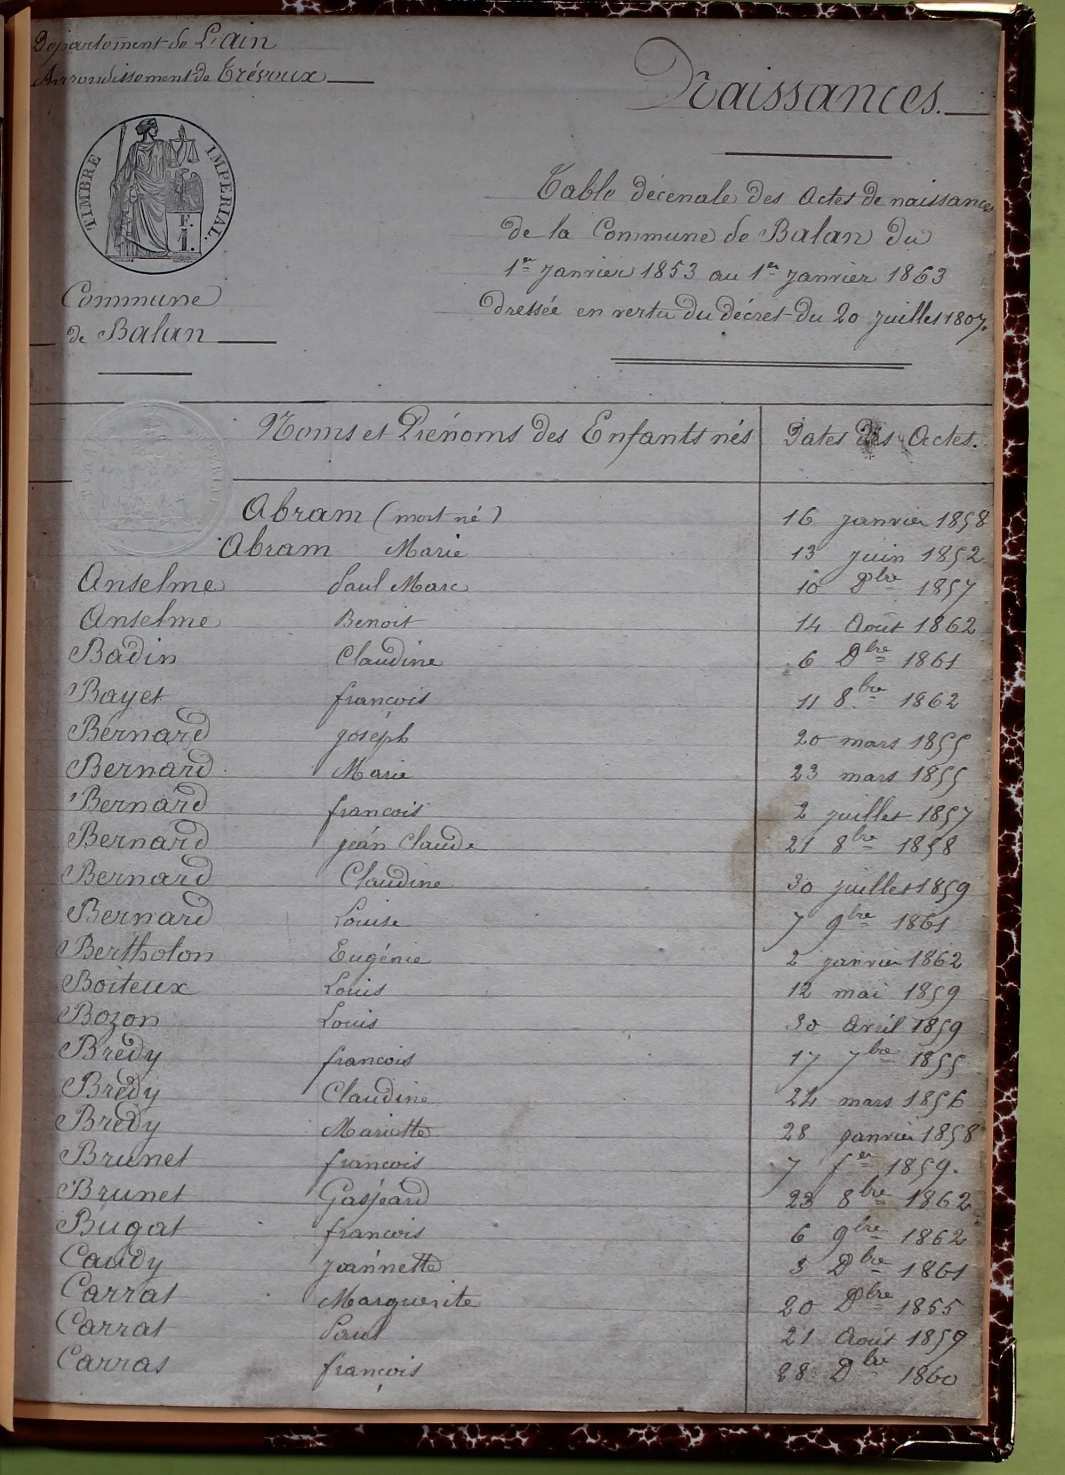 Département de L'ain
Arrondissement de Trévoux
Naissances.
TIMBRE IMPERIAL.
F.
1.
Table décenale des Actes de naissance
de la Commune de Balan du
1er Janvier 1853 au 1er Janvier 1863
dressée en vertu du décret du 20 juillet 1807.
Commune
de Balan
Noms et Prénoms des Enfants nés Dates des Actes.
Abram (mort né) 16 janvier 1858
Abram Marie 13 juin 1852
Anselme Paul Marc 10 Dbre 1857
Anselme Benoit 14 Août 1862
Badin Claudine 6 Dbre 1861
Bayet françois 11 8bre 1862
Bernard joséph 20 mars 1855
Bernard Marie 23 mars 1855
Bernard francois 2 juillet 1857
Bernard jeán Claude 21 8bre 1858
Bernard Claudine 30 juillet 1859
Bernard Louise 7 9bre 1861
Bertholon Eugénie 2 janvier 1862
Boiteux Louis 12 mai 1859
Bozon Louis 30 Avril 1859
Bredy francois 17 7bre 1855
Bredy Claudine 24 mars 1856
Bredy Mariette 28 janvier 1858
Brunet francois 7 fer 1859.
Brunet Gaspard 23 8bre 1862
Bugat francois 6 9bre 1862
Caudy jeánnette 3 Dbre 1861
Carrat Marguerite 20 Dbre 1855
Carrat Paul 21 Août 1859
Carras françois 28 Dbre 1860